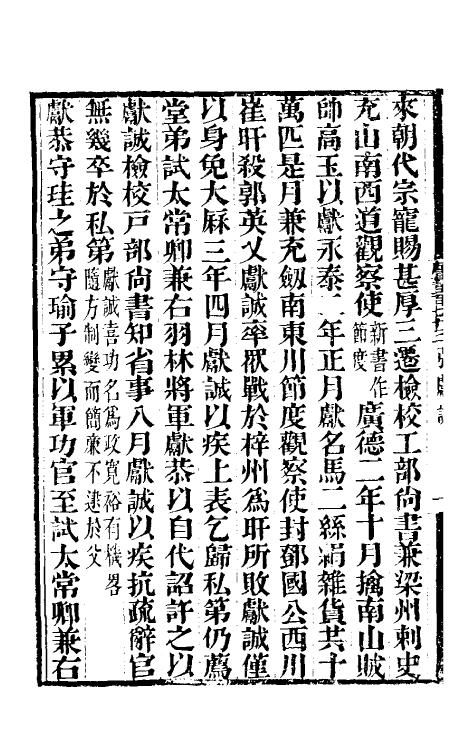 來朝代宗寵賜甚厚三遷檢校工部尚書兼梁州刺史
充山南西道觀察使新書作節度廣德二年十月擒南山賊
帥高玉以獻永泰二年正月獻名馬二絲絹雜貨共十
萬匹是月兼充劒南東川節度觀察使封鄧國公西川
崔旰殺郭英乂獻誠率眾戰於梓州為旰所敗獻誠僅
以身免大厤三年四月獻誠以疾上表乞歸私第仍薦
堂弟試太常卿兼右羽林將軍獻恭以自代詔許之以
獻誠檢校戶部尚書知省事八月獻誠以疾抗疏辭官
無幾卒於私第獻誠喜功名為政寬裕有機畧隨方制變而簡廉不逮於父
獻恭守珪之弟守瑜子累以軍功官至試太常卿兼右
張獻誠
一